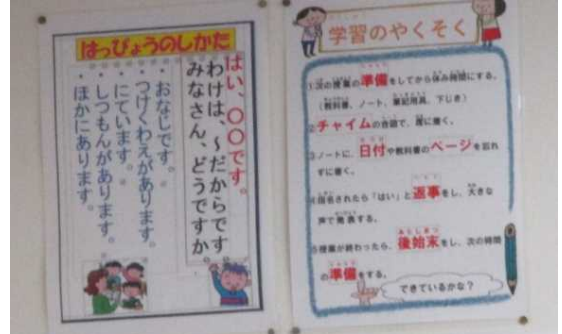 はっぴょうのしかた
はい、〇〇です。
わけは、~だからです
みなさん、どうですか
・おなじです。
・つけくわえがあります。
・にています。
・しつもんがあります。
・ほかにあります。
学習のやくそく
1次の授業の準備をしてから休み時間にする。
(教科書、ノート、筆記用具、下じき)
2チャイムの合図で、席に着く。
3ノートに、日付や教科書のページを忘れ
ずに書く。
4指名されたら「はい」と返事をし、大きな
声で発表する。
5授業が終わったら、後始末をし、次の時間
の準備をする。
できているかな?